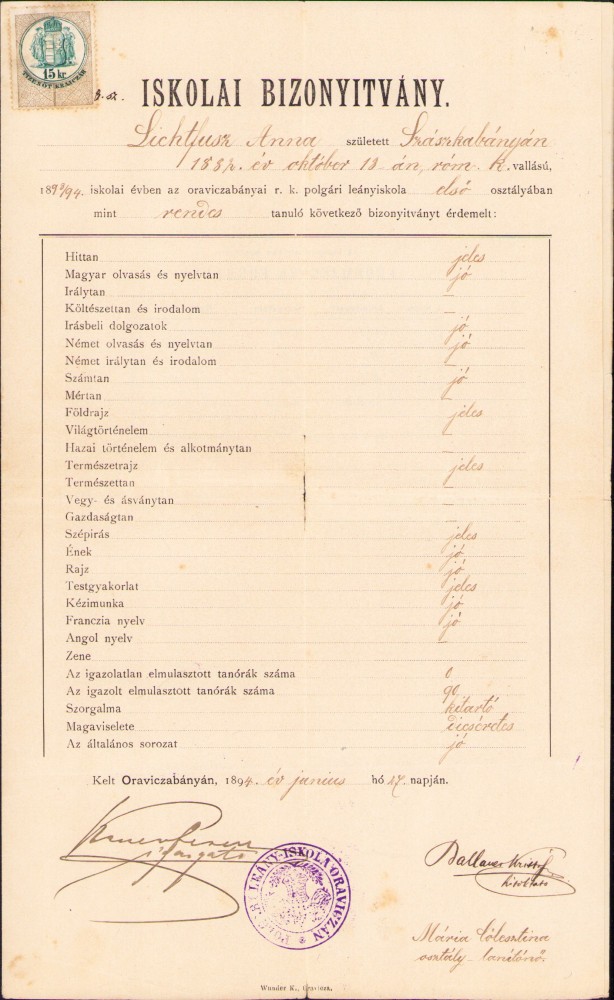 15 kr.
TIZENÖT KRAJCZÁR
sz. ISKOLAI BIZONYITVÁNY.
Lichtfusz Anna született Szászkabányán
1882. év október 13 án, róm. k. vallású,
1893/94. iskolai évben az oraviczabányai r. k. polgári leányiskola első osztályában
mint rendes tanuló következő bizonyitványt érdemelt:
Hittan jeles
Magyar olvasás és nyelvtan jó
Irálytan —
Költészettan és irodalom —
Irásbeli dolgozatok jó
Német olvasás és nyelvtan jó
Német irálytan és irodalom —
Számtan jó
Mértan —
Földrajz jeles
Világtörténelem —
Hazai történelem és alkotmánytan —
Természetrajz jeles
Természettan —
Vegy- és ásványtan —
Gazdaságtan —
Szépirás jeles
Ének jó
Rajz jó
Testgyakorlat jeles
Kézimunka jó
Franczia nyelv jó
Angol nyelv —
Zene
Az igazolatlan elmulasztott tanórák száma 0
Az igazolt elmulasztott tanórák száma 90
Szorgalma kitartó
Magaviselete dicséretes
Az általános sorozat jó
Kelt Oraviczabányán, 1894. év junius hó 27. napján.
igazgató
LEÁNY-ISKOLA ORAVICZÁN
hitoktató
Mária Cölesztina
osztály-tanítónő.
Wunder K., Oravicza.